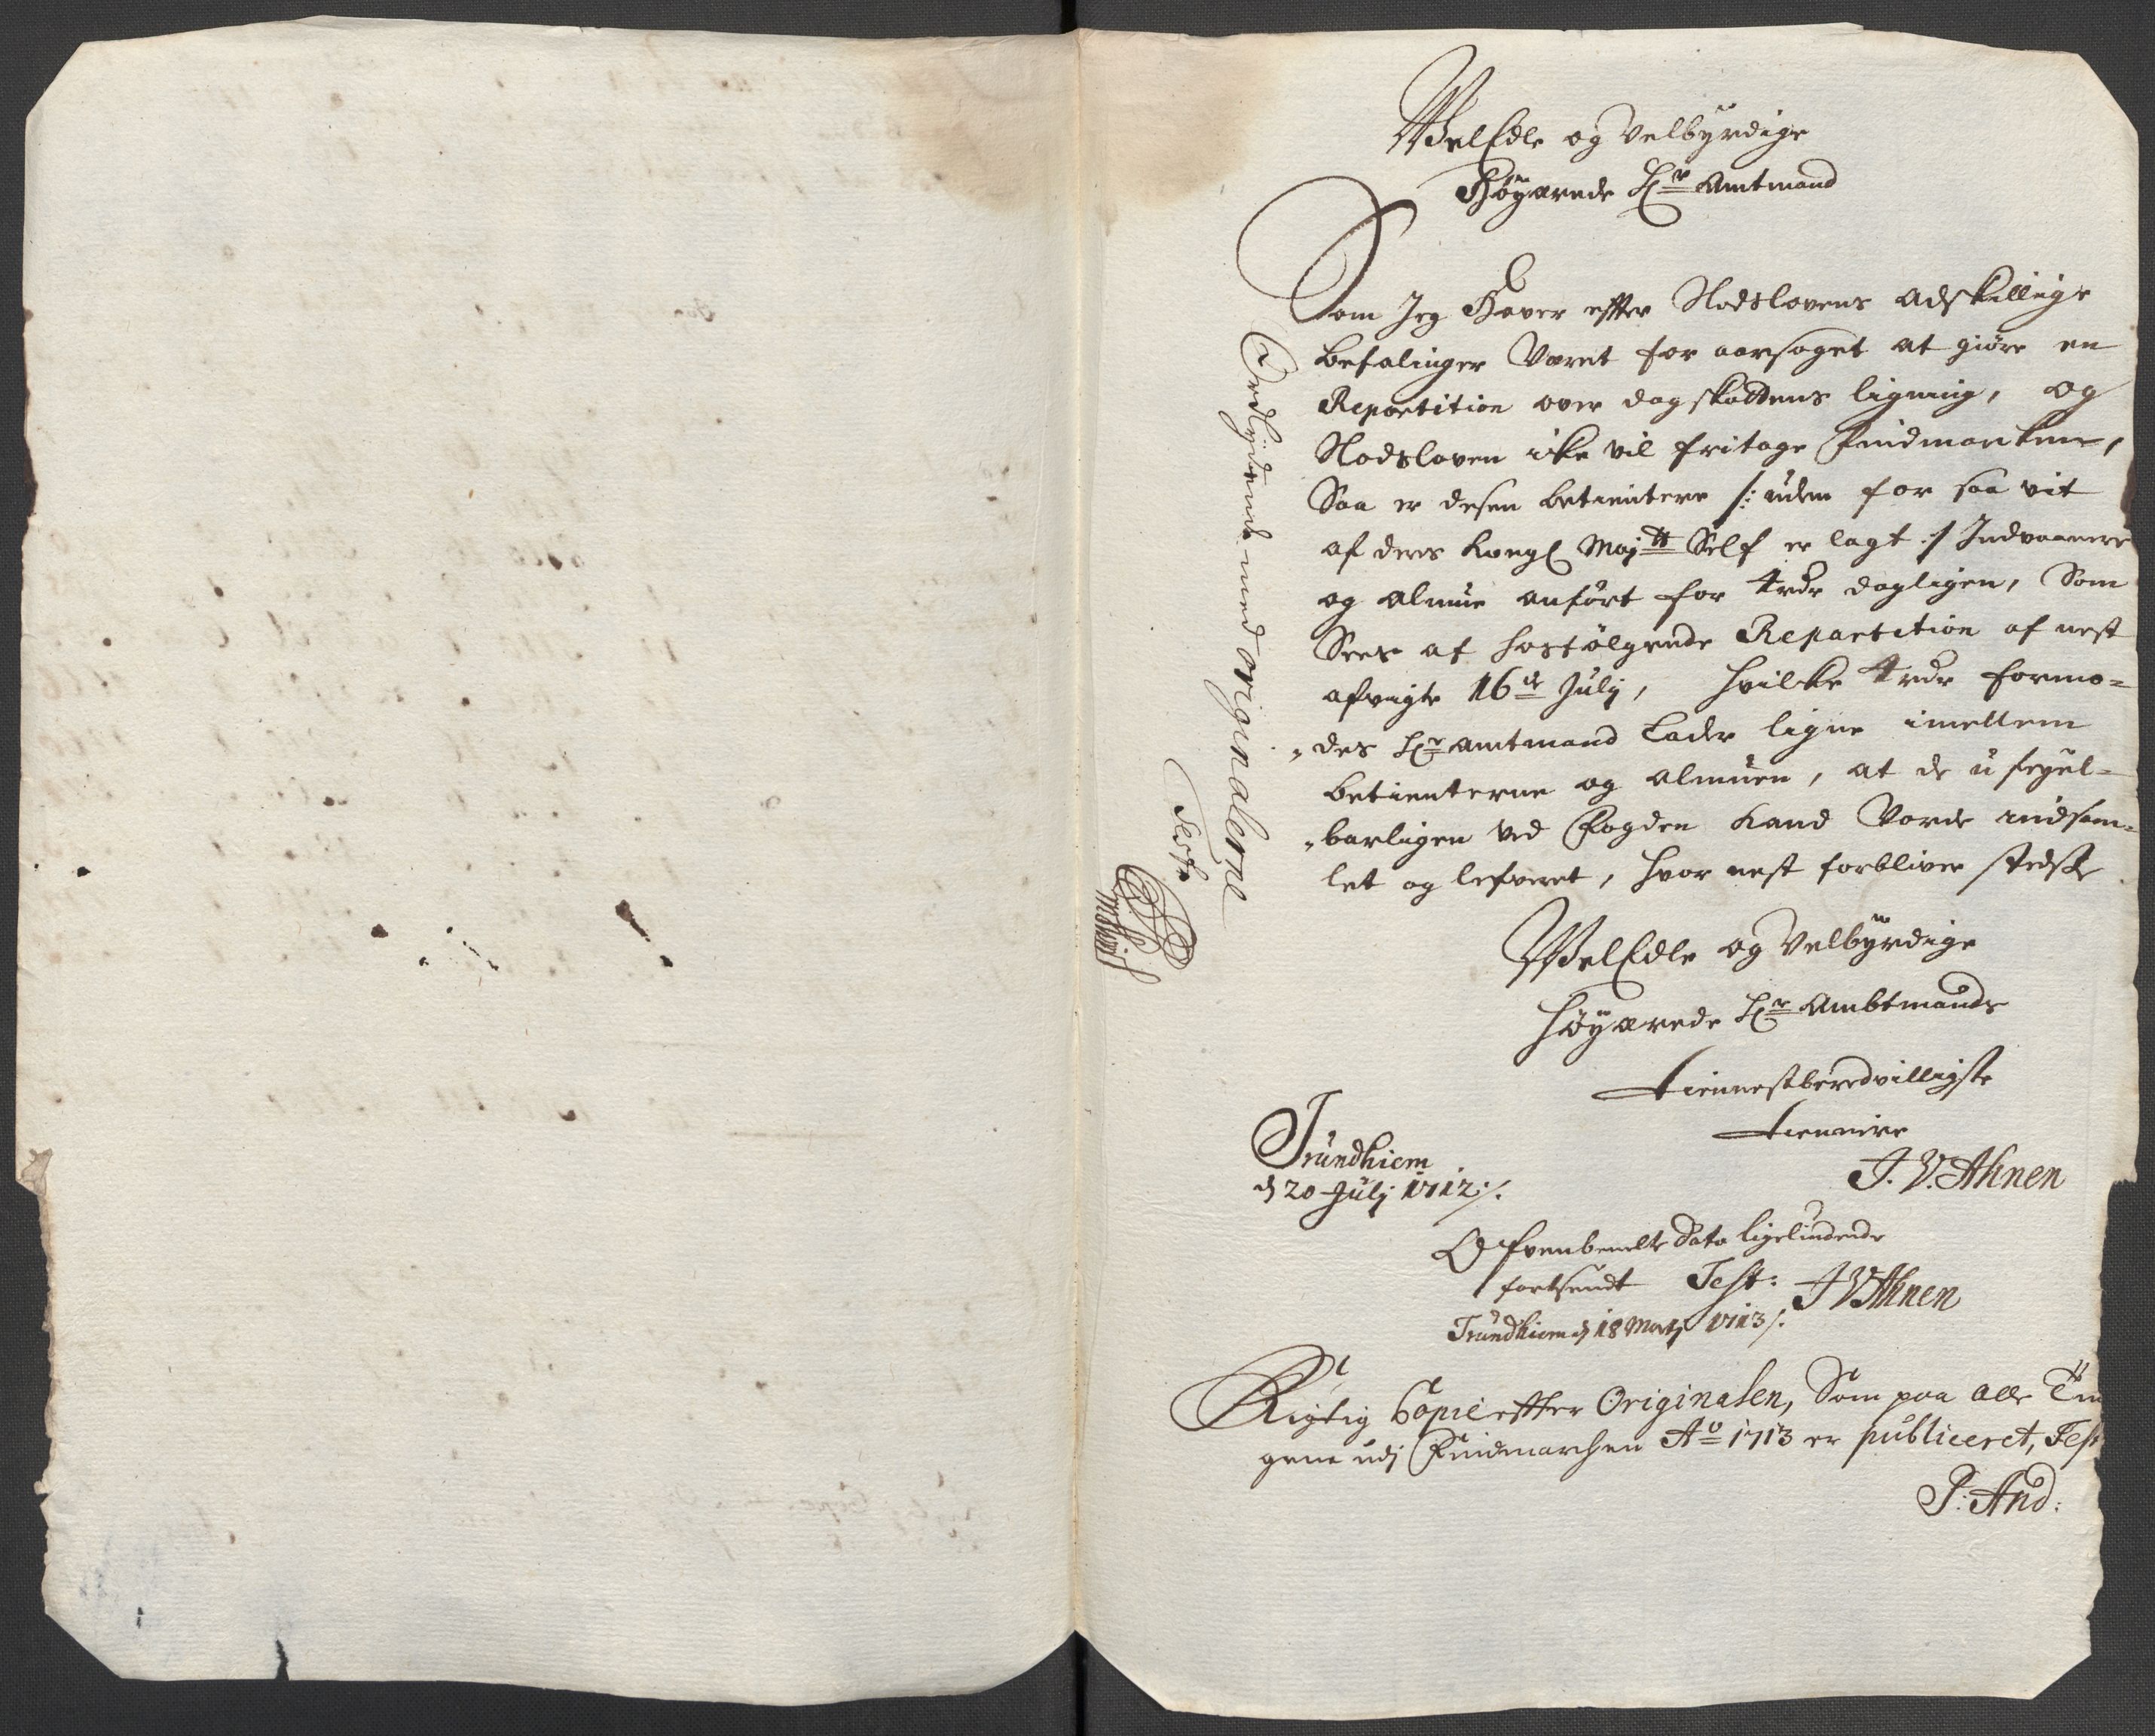 WelEdle og Velbÿrdige
Höÿærede Hr Amtmand
Som Jeg Haver effter Slodslovens adskellige
befalinger Været for aarsaget at giöre en
Repartition over dagskattens ligning, og
Slodsloven icke vil fritage Findmarken,
Saa er desen betientere /: uden for saa vit
af deres Kongl Maytt Self er lagt :/ Indvaanere
og almue anfört for 4 rdr dagligen, Som
Sees af hosfölgende Repartition af nest
afvigte 16de Julj, hvilke 4 rdr formo-
des Hr amtmand Lader ligne imellem
betienterne og almuen, at de ufeÿel-
barligen ved Fogden kand Vorde indsam-
let og lefveret, hvor nest forbliver stedse
WelEdle og Velbÿrdige
höÿærede Hr Ambtmands
tienestberedvilligste
tiennere
J. V. Ahnen
Trundhiem
d 20 Julj 1712 ./.
Ofvenbemelte Dato ligelüdende
fortsendt Test: J V Ahnen
Trundhiem d 18 Martj 1713 /.
Rigtig Copie effter Originalen, Som paa alle Tin
gene udj Findmarchen Ao 1713 er publiceret, Test
P: And:
Ordlydende med originalerne
Test